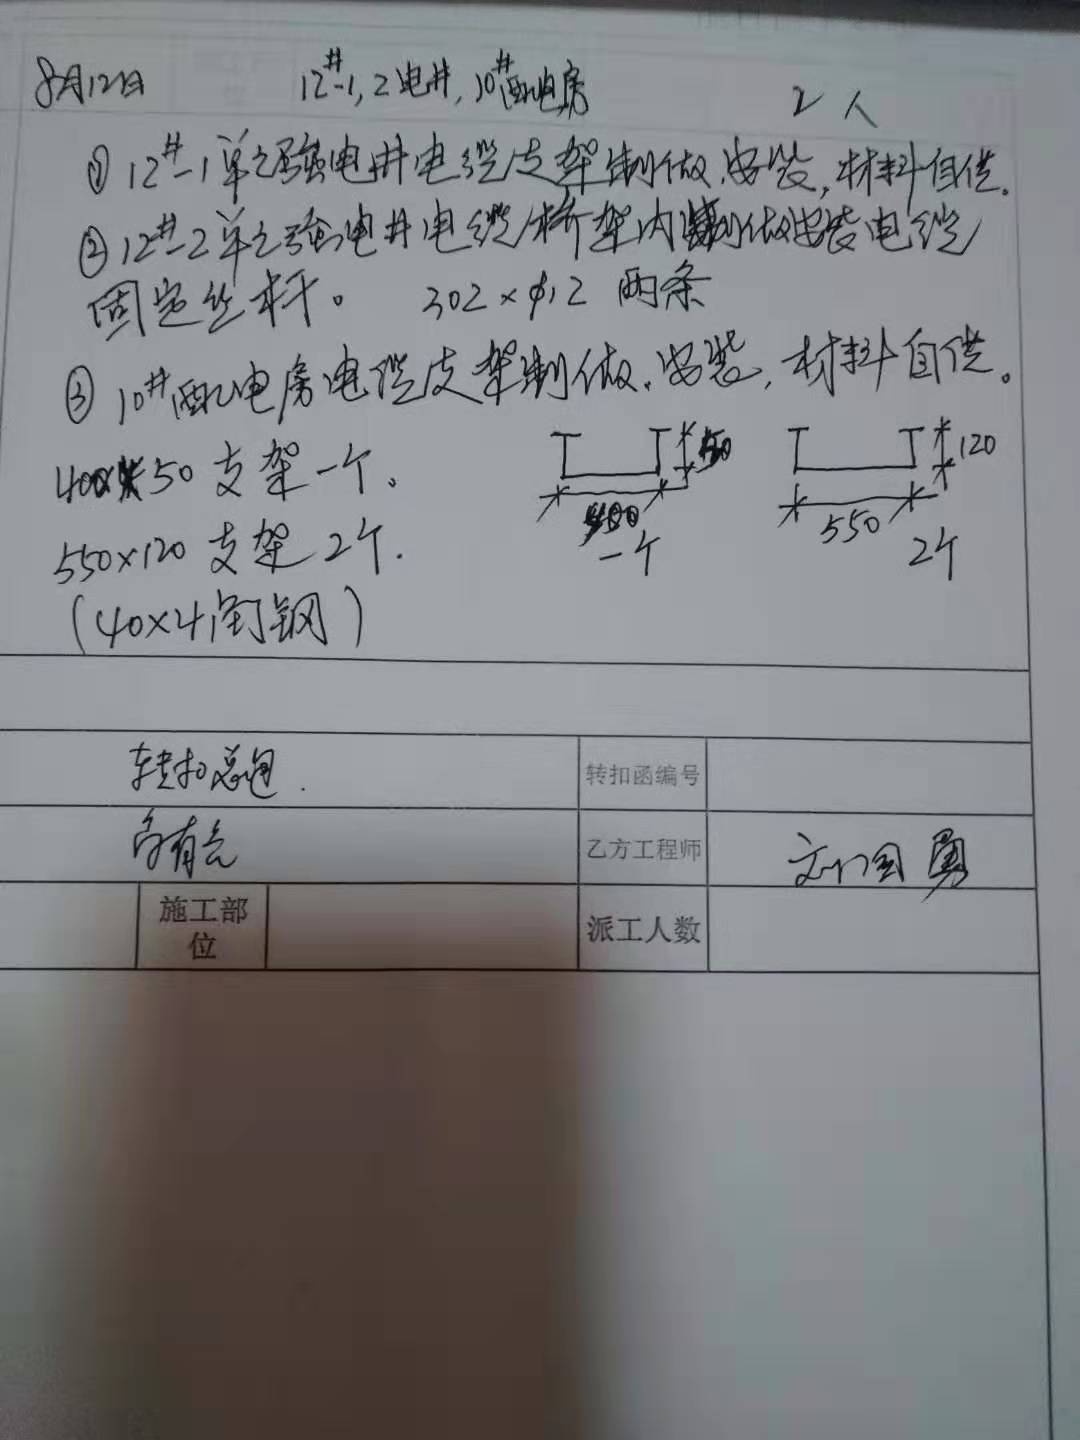 8月12日 12#-1,2电井,10#配电房 2人
① 12#-1单元强电井电缆支架制做、安装,材料自供。
② 12#-2单元强电井电缆桥架内制做安装电缆
固定丝杆。 302×φ12 两条
③ 10#配电房电缆支架制做、安装,材料自供。
400×50 支架一个。
50
400
一个
120
550
2个
550×120 支架2个.
(40×4角钢)
转扣总包.
转扣函编号
有
乙方工程师
国勇
施工部
位
派工人数